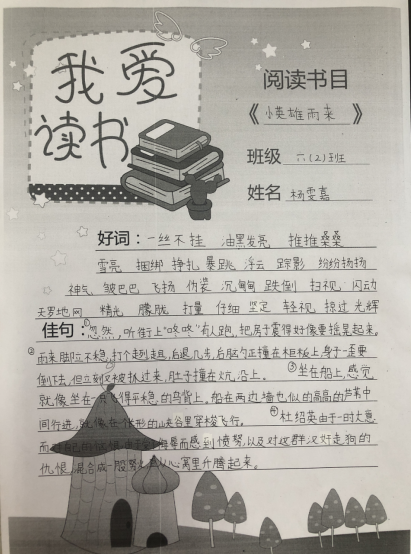 我爱
读书
阅读书目
《小英雄雨来》
班级 六(2)班
姓名 杨雯嘉
好词：一丝不挂 油黑发亮 推推桑桑
雪亮 捆绑 挣扎 暴跳 浮云 踪影 纷纷扬扬
神气 皱巴巴 飞扬 伪装 沉甸甸 跌倒 扫视 闪动
天罗地网 精光 朦胧 打量 仔细 坚定 轻视 掠过 光辉
佳句：①忽然，听街上"咚咚"有人跑，把房子震得好像要摇晃起来。
②雨来脚跕不稳，打个趔趄，后退几步，后脑勺正撞在柜板上，身子一歪要
倒下去，但立刻又被抓过来，肚子撞在炕沿上。③坐在船上，感觉
就像坐在一只飞得平稳的鸟背上，船在两边墙也似的高高的芦苇中
间行进，就像在 形的峡谷里穿梭飞行。④杜绍英由于一时大意
而 而感到愤努，以及对这群汉奸走狗的
仇恨，混合成一股努火 从心窝里升腾起来。